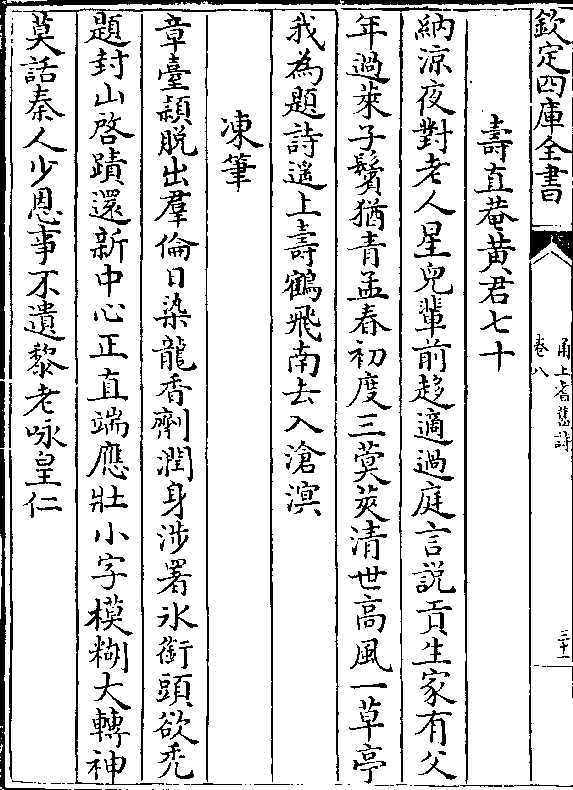 欽定四庫全書
甬上耆舊詩
卷八
三十一
壽直菴黄君七十
納凉夜對老人星兒輩前趍適過庭言說貢生家有父
年過萊子鬢猶青孟春初度三蓂莢清世高風一草亭
我為題詩遥上壽鶴飛南去入滄溟
凍筆
章臺頴脱出羣倫日染龍香劑潤身涉署氷銜頭欲禿
題封山啓蹟還新中心正直端應壯小字模糊大轉神
莫話秦人少恩事不遺黎老咏皇仁